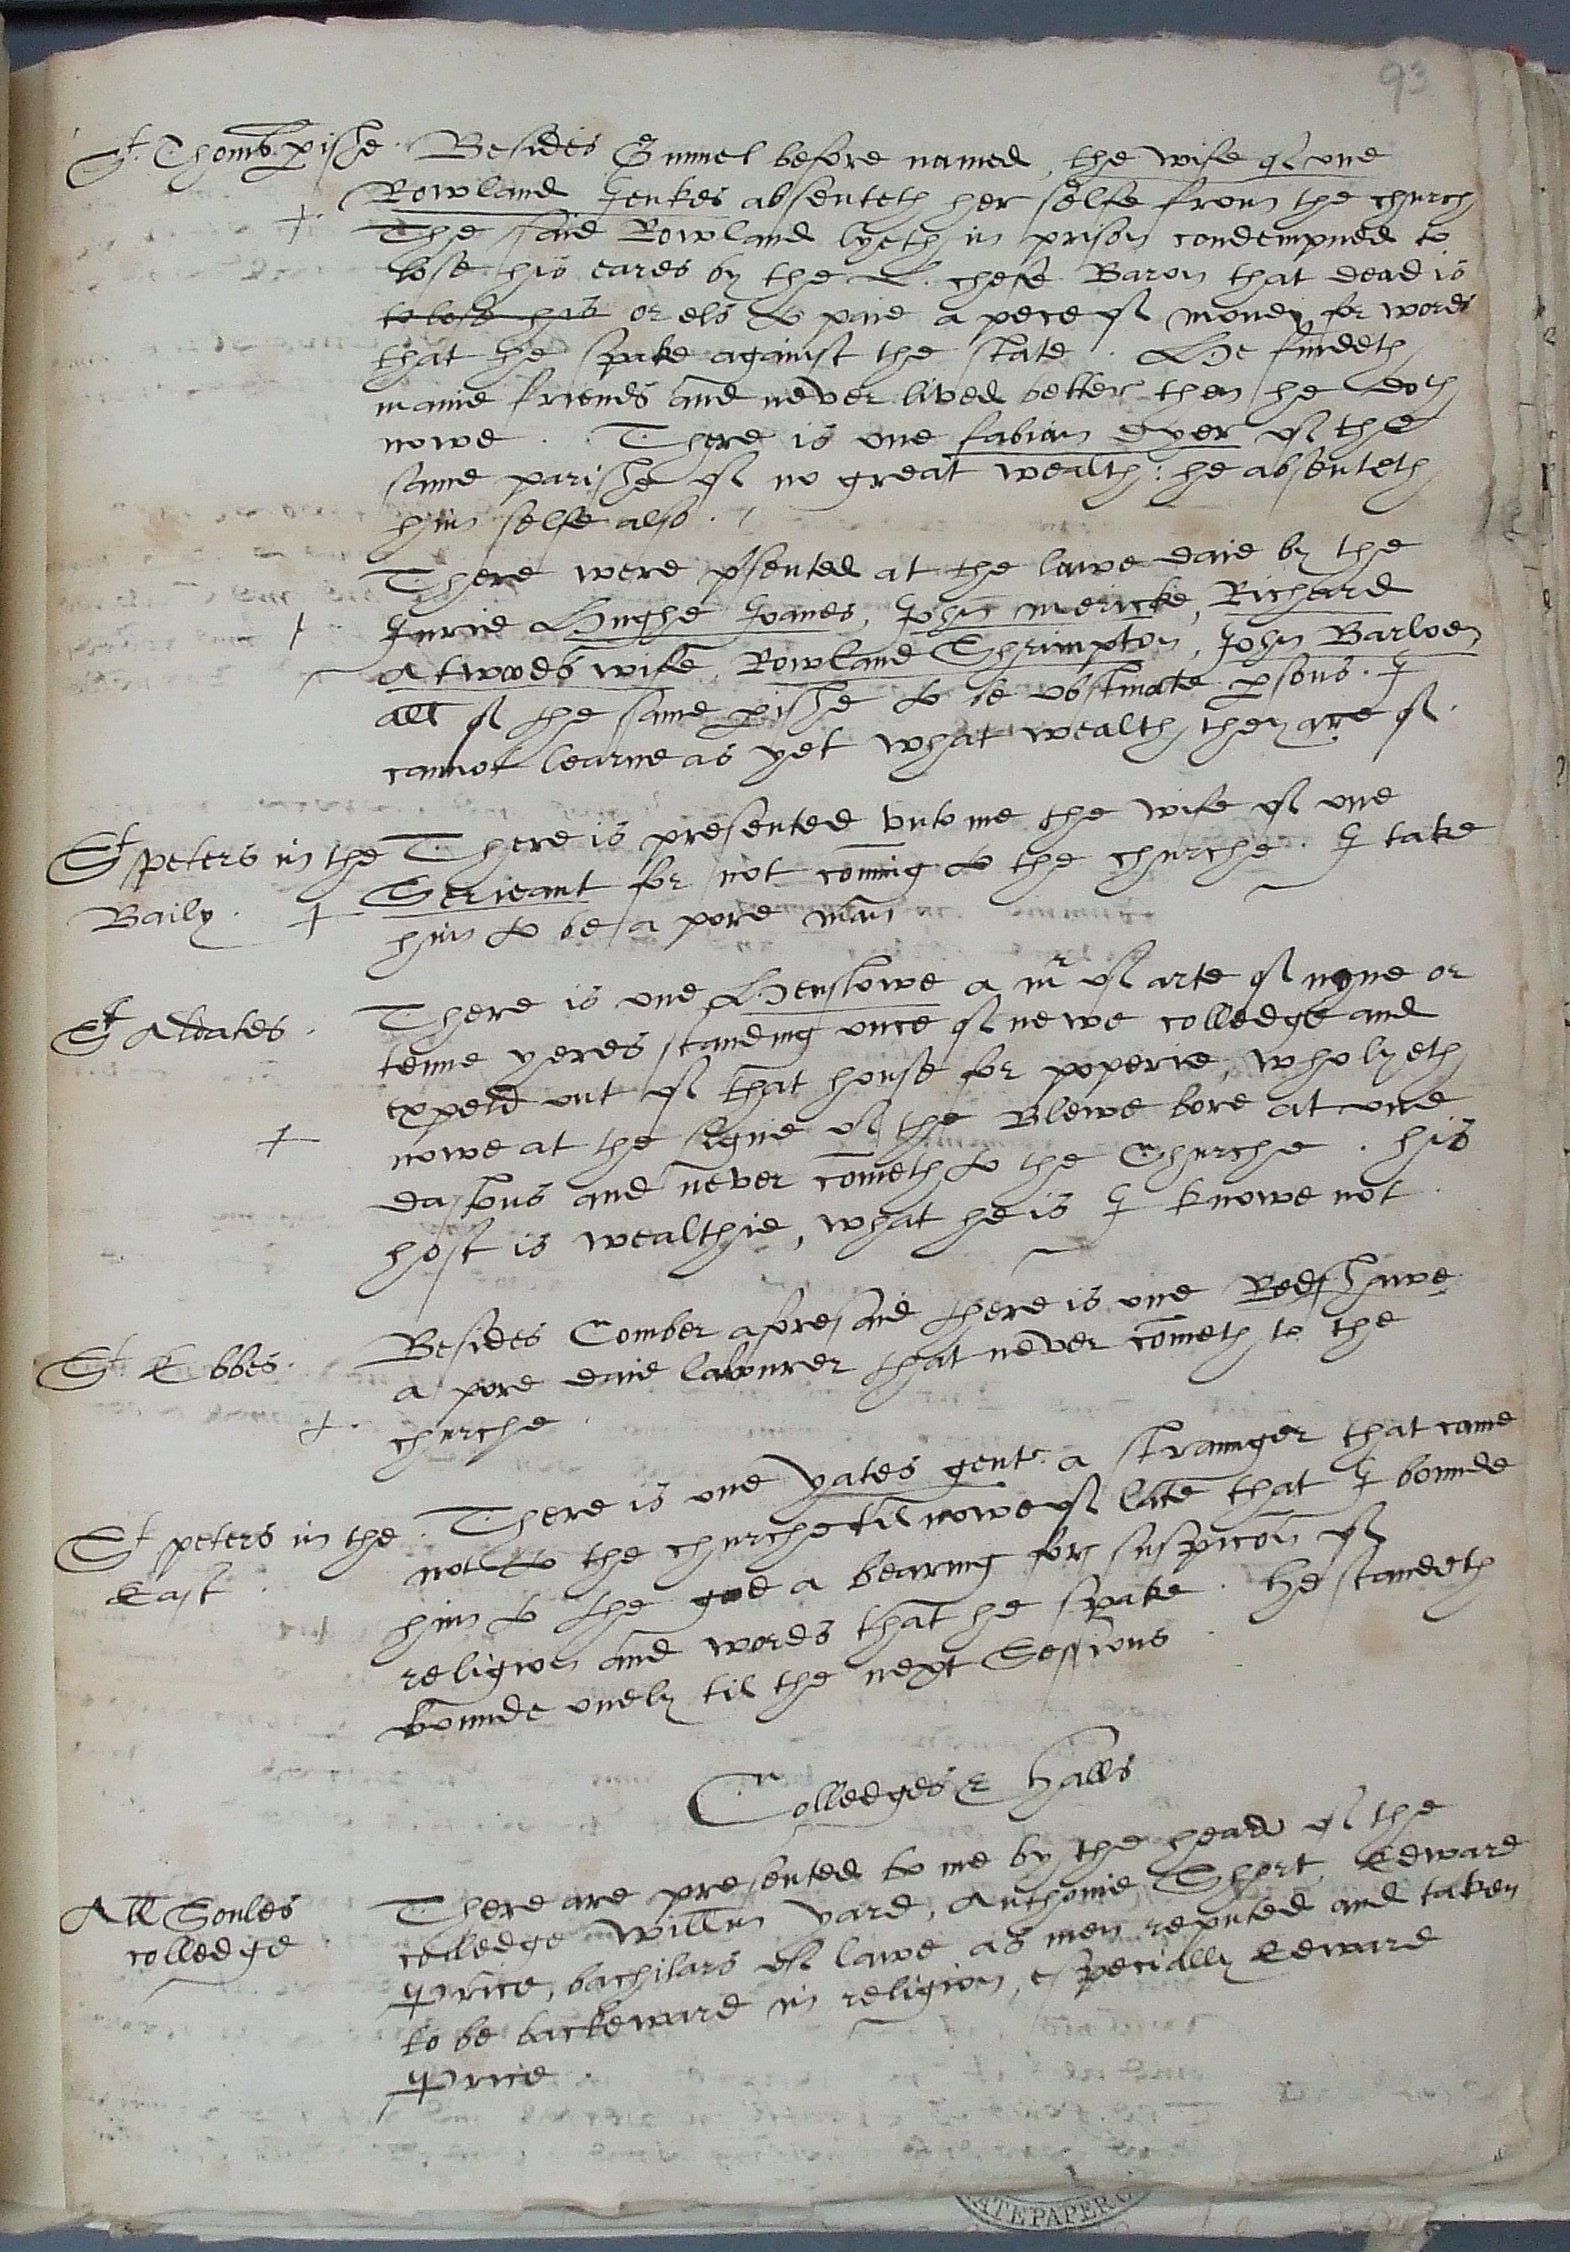 93
St. Thom's pishe. Besides Gunnel before named, the wife of one
Rowland Jenkes absenteth her selfe from the church
The said Rowland lyeth in prison condempned to
lose his eares by the L. chefe Baron that dead is
to lose his or els to paie a pece of money for words
that he spake against the state. He findeth
manie friends and never lived better then he doth
nowe. There is one fabian dyer of the
same parishe of no great wealth: he absenteth
him selfe also.
There were psented at the lawe daie by the
Jurie Hughe Joanes, John Mericke, Richard
Atwoods wife, Rowland Shrimpton, John Barloen
all of the same pishe to be obstinate psons. I
cannot learne as yet what wealth they are of.
St peters in the There is presented unto me the wife of one
Baily. Serjeant for not comig to the churche. I take
him to be a pore man
St Aldates. There is one Henslowe a mr of arte of nyne or
tenne yeres standing once of newe colledge and
expeld out of that house for poperie, who lyeth
nowe at the signe of the Blewe bore at one
Dastons and never cometh to the Churche. his
host is wealthie, what he is I knowe not.
St Ebbes. Besides Comber aforesaid there is one Redshawe
a pore daie labourer that never cometh to the
churche.
St peters in the There is one yates gent. a straunger that came
East. not to the churche til nowe of late that I bounde
him to the good a bearing for suspicon of
religion and words that he spake. He standeth
bounde onely til the next Sessions.
Colledges & Halls
All Soules There are presented to me by the head of the
colledge colledge Willm yard, Anthonie Short, Edward
Price, bachilars of lawe as men reputed and taken
to be backeward in religion, especially Edward
Price.